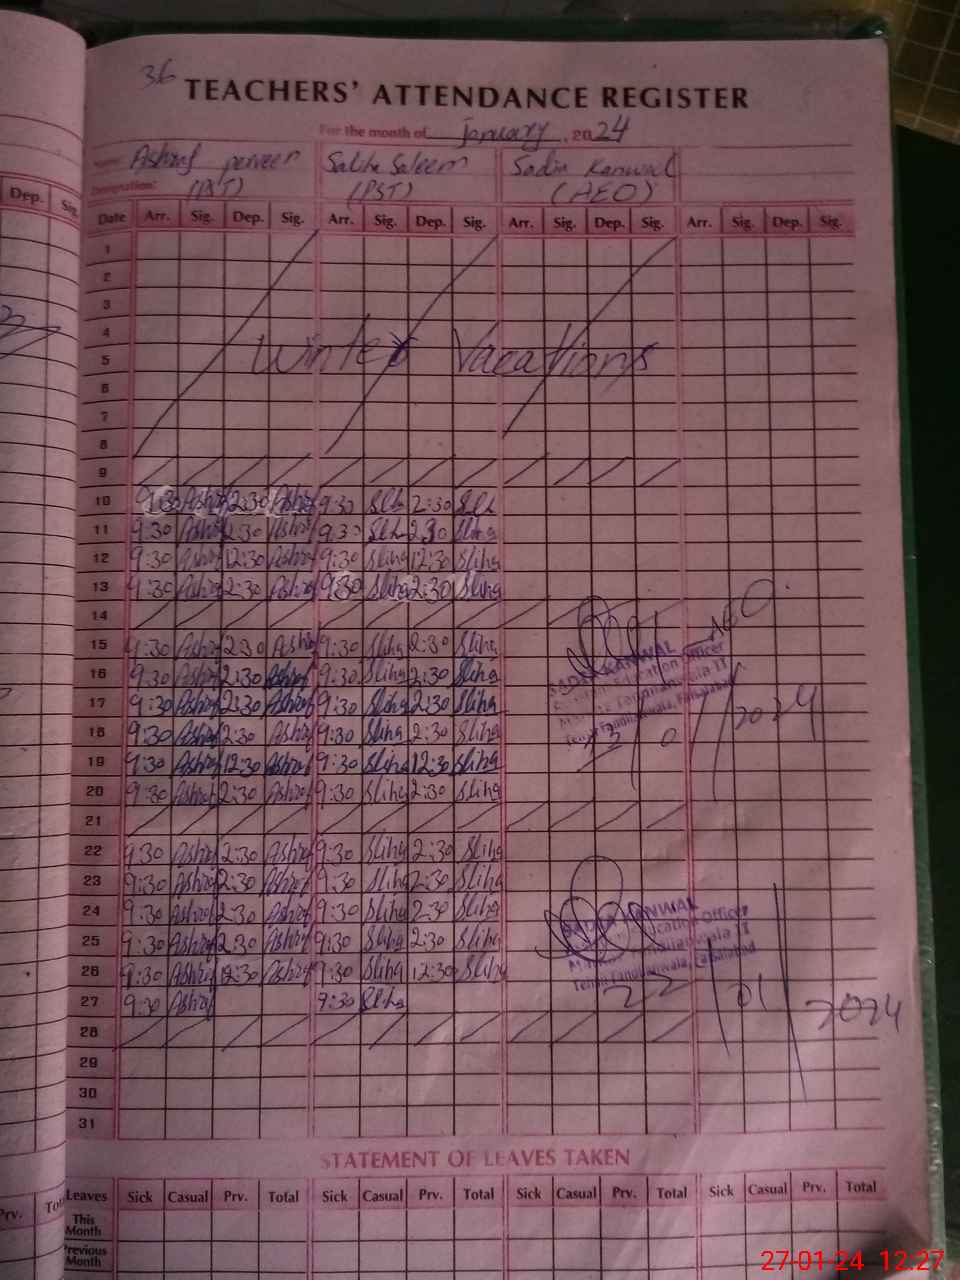 36
TEACHERS' ATTENDANCE REGISTER
For the month of January, 2024
Name: Ashraf perveen Saliha Saleem Sadia Kanwal
Designation: (PST) (PST) (AEO)
Dep. Sig.
Date Arr. Sig. Dep. Sig. Arr. Sig. Dep. Sig. Arr. Sig. Dep. Sig. Arr. Sig. Dep. Sig.
1
2
3
4
Winter Vacations
5
6
7
8
9
10 9:30 Ashraf 2:30 Ashraf 9:30 2:30
11 9:30 Ashraf 2:30 Ashraf 9:30 2:30 Sliha
12 9:30 Ashraf 12:30 Ashraf 9:30 Sliha 12:30 Sliha
13 9:30 Ashraf 2:30 Ashraf 9:30 Sliha 2:30 Sliha
14
AEO
15 9:30 Ashraf 2:30 Ashraf 9:30 Sliha 2:30 Sliha
16 9:30 Ashraf 2:30 Ashraf 9:30 Sliha 2:30 Sliha
17 9:30 Ashraf 2:30 Ashraf 9:30 Sliha 2:30 Sliha
18 9:30 Ashraf 2:30 Ashraf 9:30 Sliha 2:30 Sliha
19 9:30 Ashraf 12:30 Ashraf 9:30 Sliha 12:30 Sliha
20 9:30 Ashraf 2:30 Ashraf 9:30 Sliha 2:30 Sliha
SADIA KANWAL
Education Officer
Markaz II
Tehsil Faisalabad
01/2024
21
22 9:30 Ashraf 2:30 Ashraf 9:30 Sliha 2:30 Sliha
23 9:30 Ashraf 2:30 Ashraf 9:30 Sliha 2:30 Sliha
24 9:30 Ashraf 2:30 Ashraf 9:30 Sliha 2:30 Sliha
25 9:30 Ashraf 2:30 Ashraf 9:30 Sliha 2:30 Sliha
26 9:30 Ashraf 12:30 Ashraf 9:30 Sliha 12:30 Sliha
27 9:30 Ashraf 9:30 Sliha
SADIA KANWAL
Education Officer
Markaz II
Tehsil Faisalabad
22/01/2024
28
29
30
31
STATEMENT OF LEAVES TAKEN
Prv. Total
Leaves Sick Casual Prv. Total Sick Casual Prv. Total Sick Casual Prv. Total Sick Casual Prv. Total
This Month
Previous Month
27-01-24 12:27